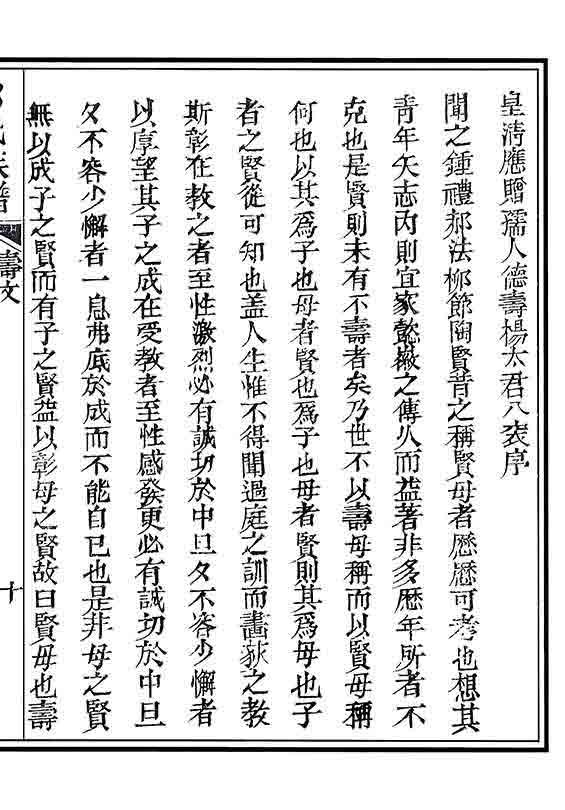 皇清應贈孺人德壽楊太君八袠序
聞之鍾禮郝法柳節陶賢昔之稱賢母者歷歷可考也想其
靑年矢志内則宜家懿徽之傳乆而益著非多歷年所者不
克也是賢則未有不壽者矣乃世不以壽母稱而以賢母稱
何也以其爲子也母者賢也爲子也母者賢則其爲母也子
者之賢從可知也盖人生惟不得聞過庭之訓而畵荻之教
斯彰在教之者至性激烈必有誠切於中旦夕不容少懈者
以厚望其子之成在受教者至性感發更必有誠切於中旦
夕不容少懈者一息弗底於成而不能自已也是非母之賢
無以成子之賢而有子之賢益以彰母之賢故曰賢母也壽
氏族譜
壽文
十